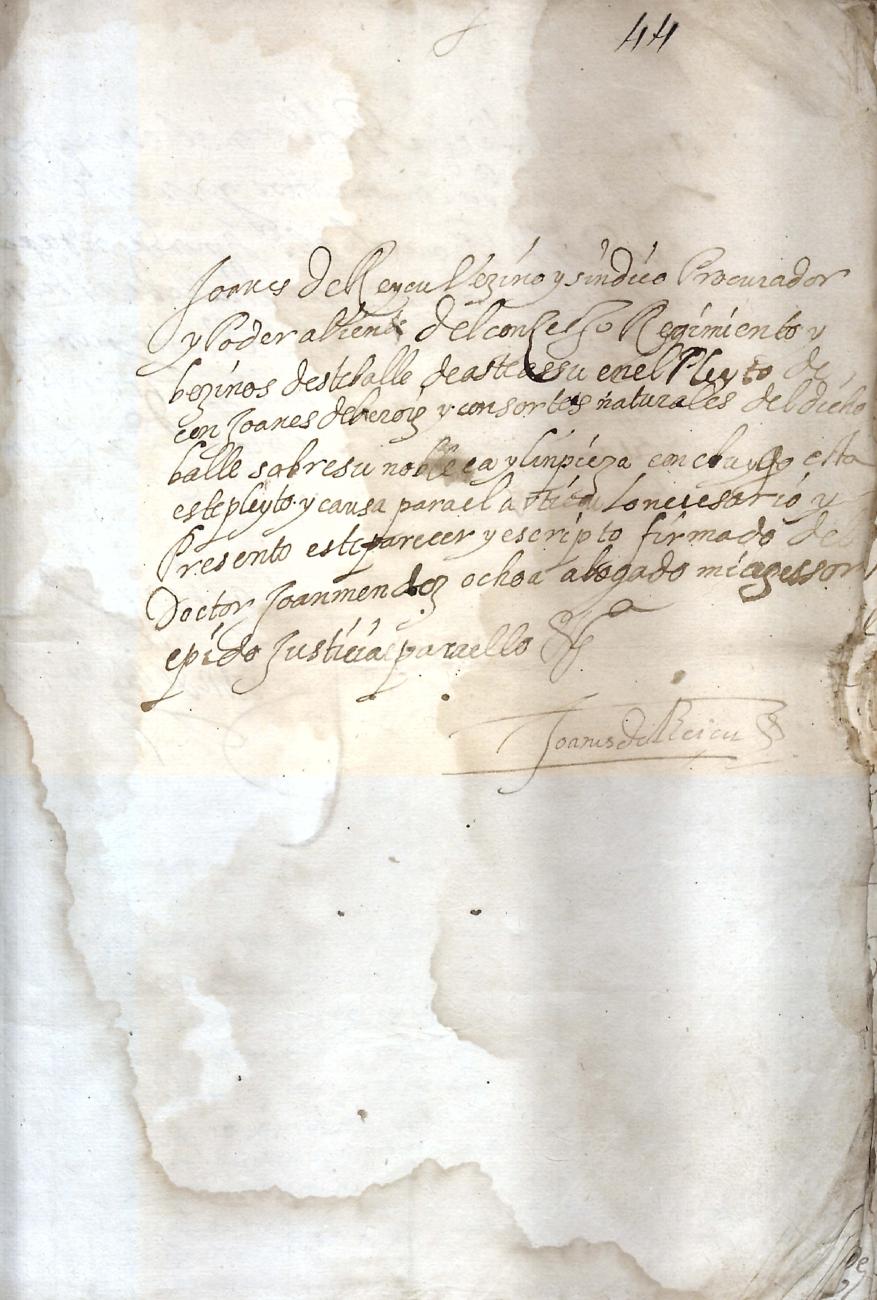 44
Joanes de Reycu Vezino y sindico Procurador
y Poder abiente del concejo Regimiento y
bezinos deste balle de asteassu en el Pleyto de
con Joanes de beroiz y consortes naturales del dicho
balle sobre su nobleca y linpieza concluyo esta
este pleyto y causa para el articulo necesario y
Presento este parecer y escripto firmado del
Doctor Joan mendez ochoa abogado mi asessor
e pido Justicia para ello
Joanes de Reicu